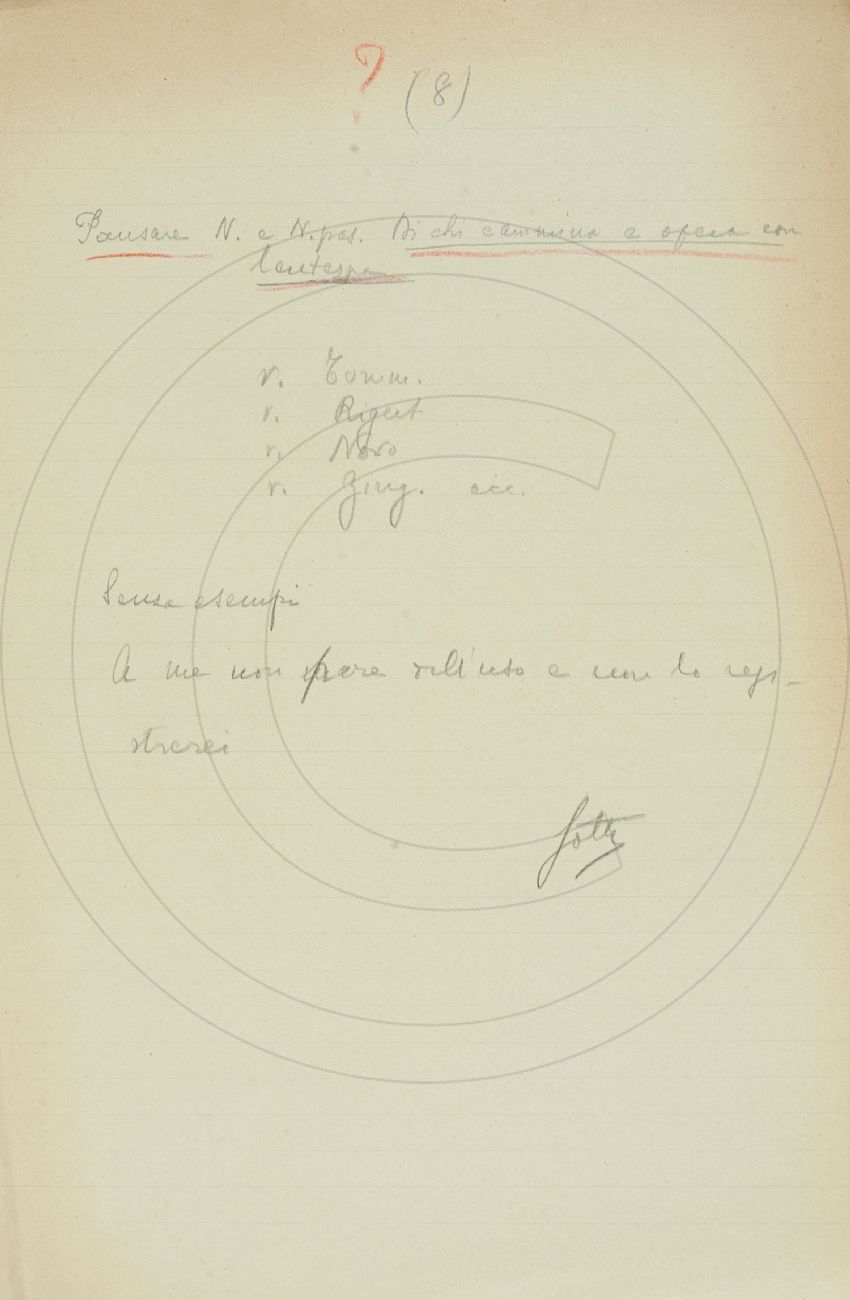 ? (8)
Pausare N. e N. pas. Di chi cammina e opera con
lentezza
v. Tomm.
v. Rigut
v. Novo
v. Zing. ecc.
Senza esempi
A me non pare dell'uso e non lo regi-
strerei